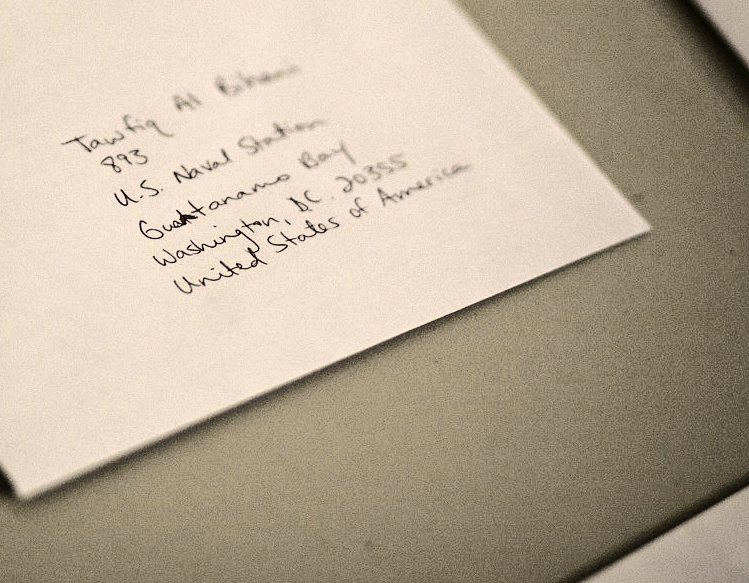 Tawfiq Al Bihani
893
U.S. Naval Station
Guantanamo Bay
Washington, DC. 20355
United States of America